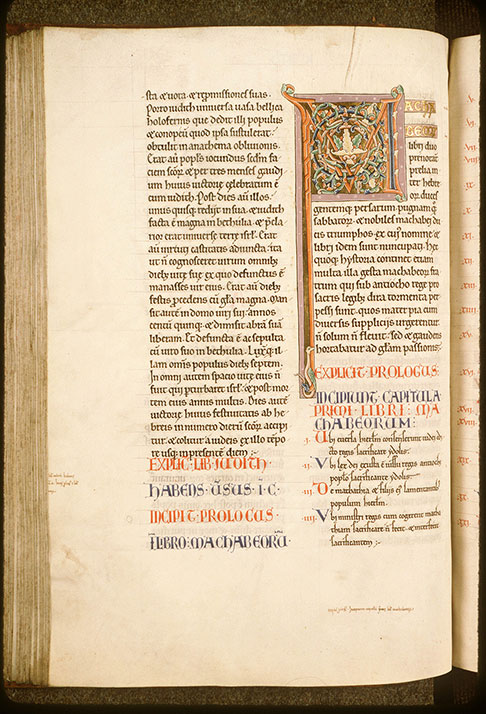 sta & uota & repmissiones suas.
Porro iudith uniuersa uasa bellica
holofernis que dedit illi populus
& conopeū quod ipsa sustulerat
obtulit in anathema obliuionis.
Erat aū popl's iocundus scdm fa
ciem scōr & per tres menses gaudi
um huius uictorie celebratum ē
cum iudith. Post dies aū illos
unus quisq; redijt in sua. & iudith
facta ē magna in bethulia. & p̄cla
rior erat uniuerse terre isrl'. Erat
aū uirtuti castitatis adiuncta. ita
ut n̄ cognosceret uirum omnib;
dieb; uite sue ex quo defunctus ē
manasses uir eius. Erat aū dieb;
festis p̄cedens cū gl'a magna. Man
sit autē in domo uiri sui annos
centū quinq; & dimisit abrā suā
liberam. Et defuncta ē ac sepulta
cū uiro suo in bethulia. Luxitq; il
lam om̄is populus dieb; septem.
In omni autem spacio uite eius n̄
fuit qui p̄turbaret isrl'. & post mor
tem eius annis multis. Dies autē
uictorie huius festiuitatis ab he
breis in numero dierū scōr accipi
tur. & colitur a iudeis ex illo tēpo
re usq; in p̄sentē diem
EXPLIC· LIB· IUDITH·
HABENS· UERSUS· I· C·
INCIPIT· PROLOGUS·
Ī LIBRO· MACHABEORŪ·
MACHA
BEORŪ
libri duo
prenotant
prelia in
ter hebre
or duces
gentemq; persarum. pugnam q;
sabbator. & nobiles machabei du
cis triumphos. ex cui' nomine &
libri idem sunt nuncupati. Hec
quoq; hystoria continet etiam
multa illa gesta machabeor fra
trum qui sub antiocho rege pro
sacris legib; dira tormenta per
pessi sunt. quos mater pia cum
diuersis supplicijs urgerentur
n̄ solum n̄ fleuit. sed & gaudens
hortabatur ad gl'am passionis.
EXPLICIT· PROLOGUS·
INCIPIUNT CAPITULA
PRIMI· LIBRI· MA
CHABEORUM·
I· Ubi euersa hierlm consenserunt iudei di
cto regis sacrificare ydolis.
II· Ubi lex dei exusta ē iussu regis antiochi
popl's sacrificare ydolis.
III· De mathathia & filijs ei' lamentantib;
populum hierlm.
IIII· Ubi ministri regis cum cogerent matha
thiam sacrificare n̄ fecit. & interfecit
sacrificantem